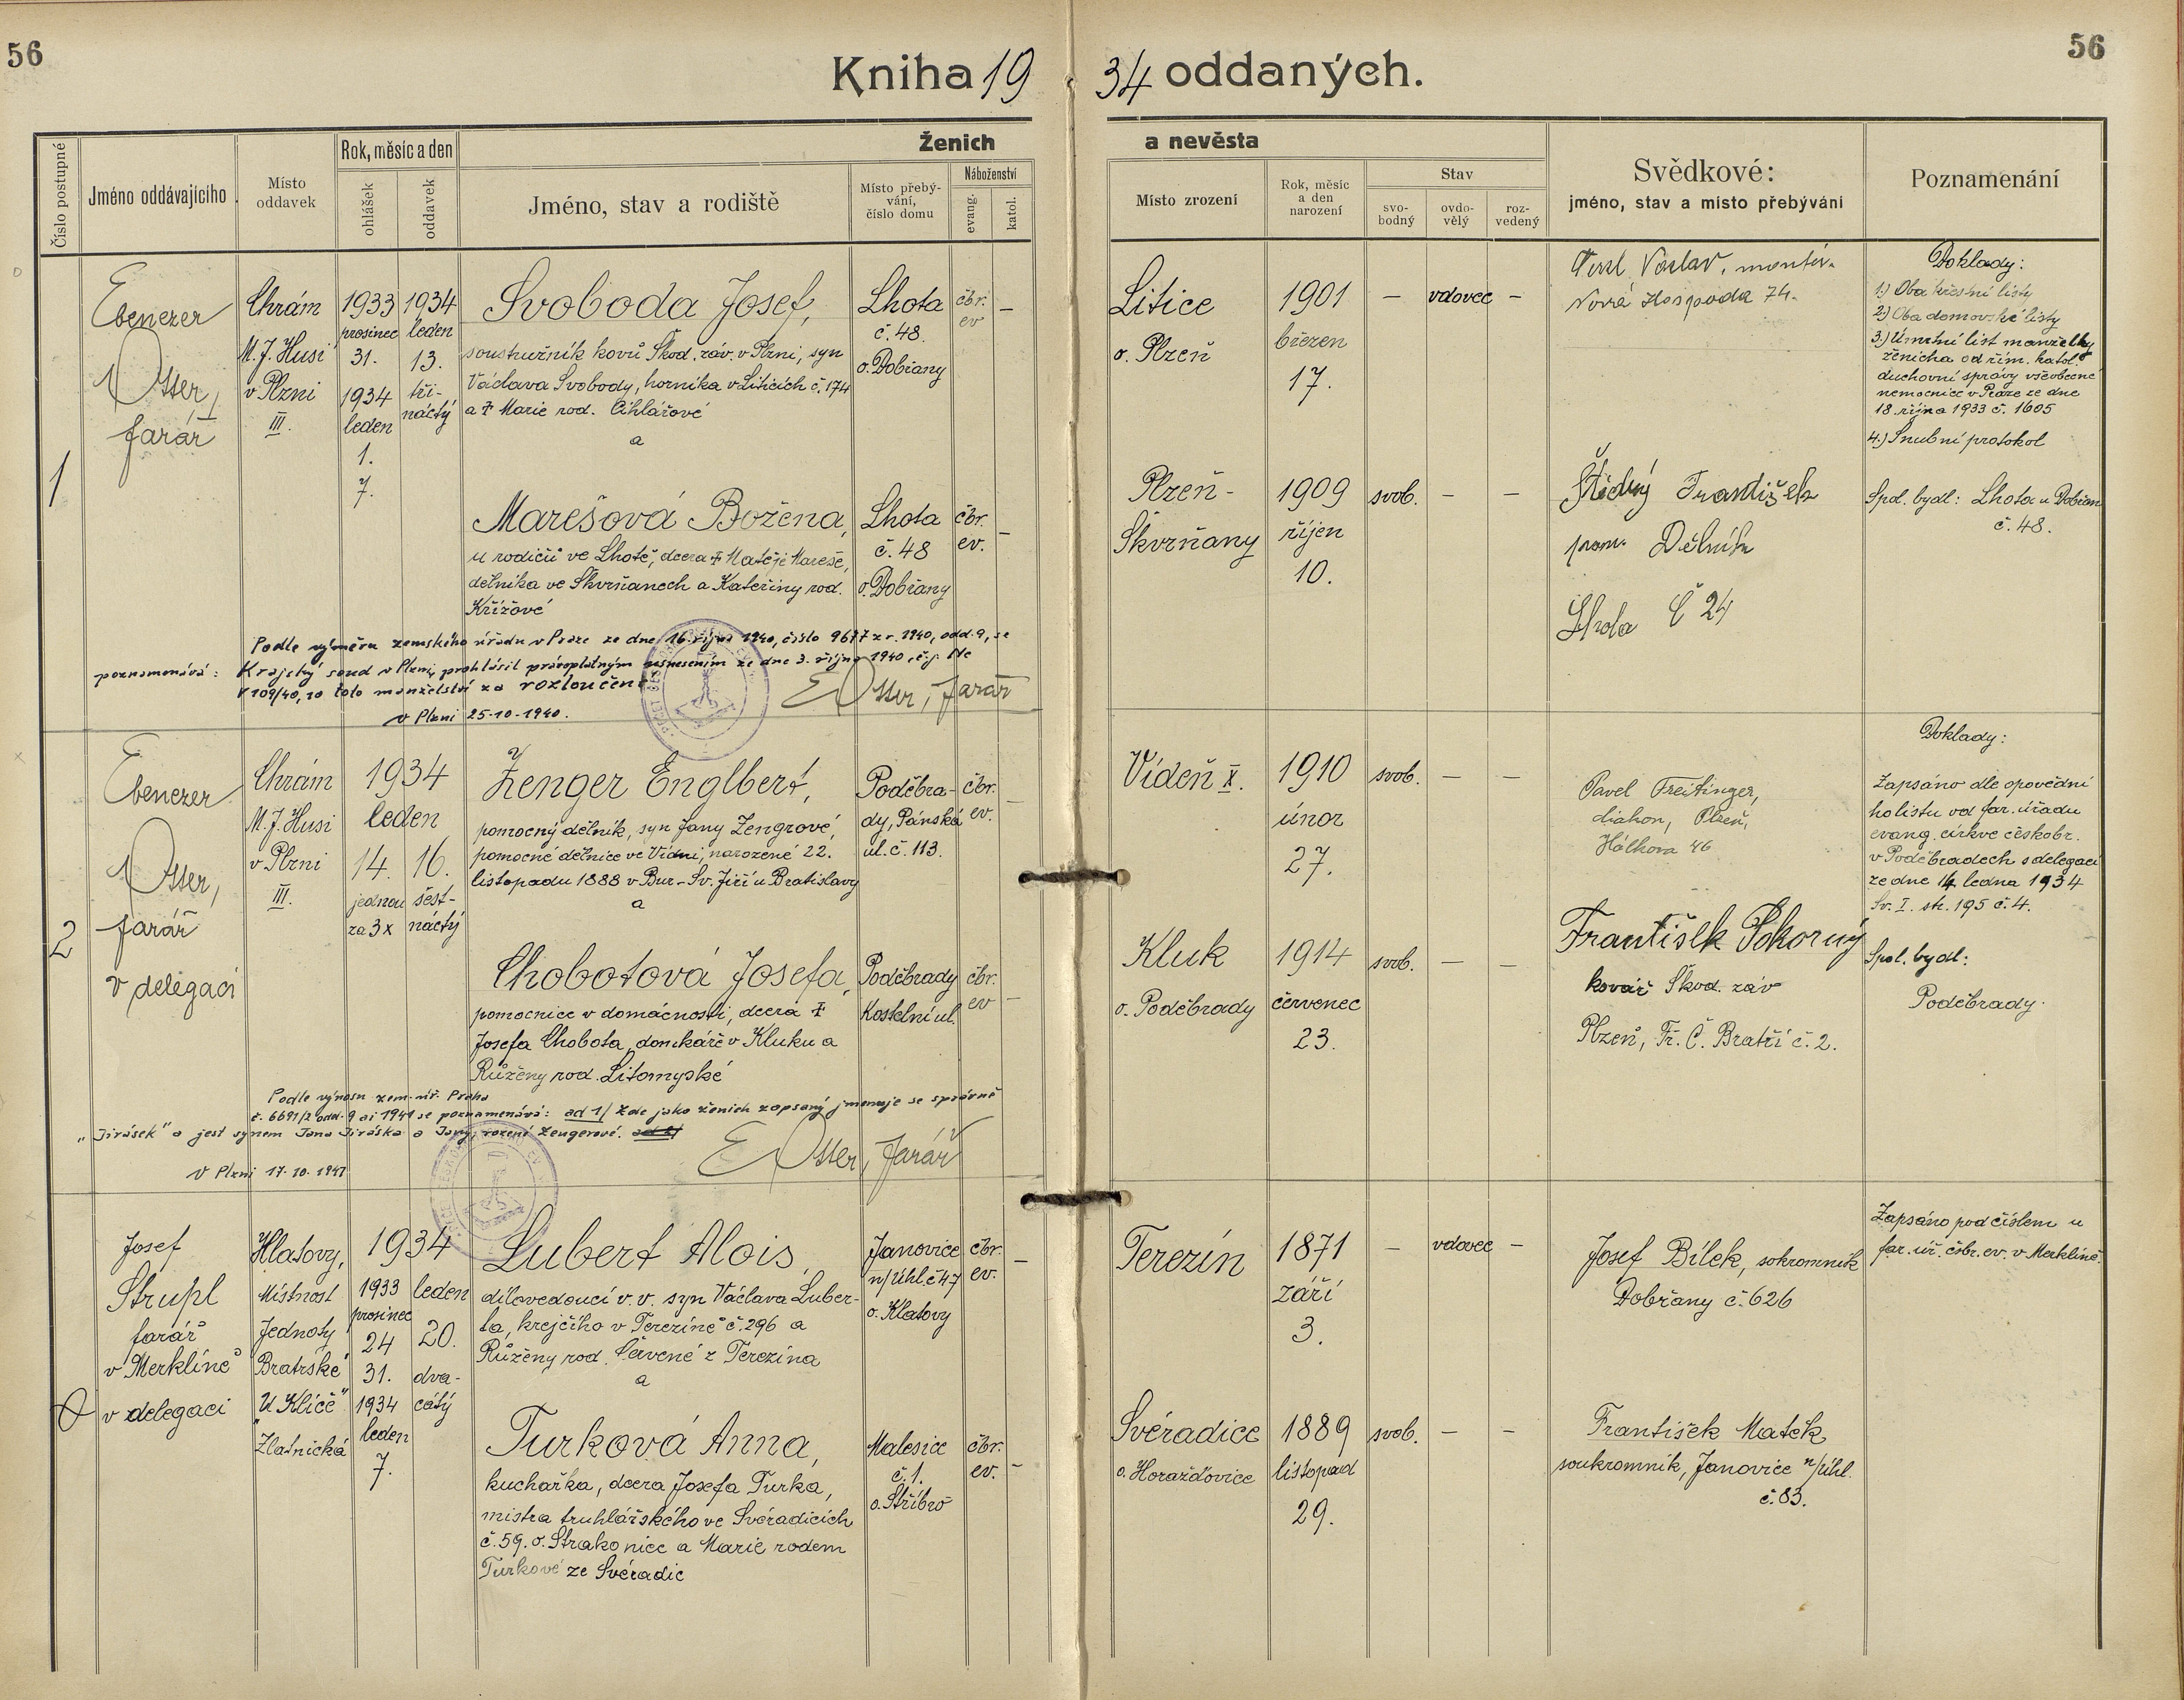 56
Kniha 19 34 oddaných.
56
Číslo postupné
Jméno oddávajícího
Místo oddavek
Rok, měsíc a den
ohlášek
oddavek
Ženich
Jméno, stav a rodiště
Místo přebývání, číslo domu
Náboženství
evang.
katol.
a nevěsta
Místo zrození
Rok, měsíc a den narození
Stav
svobodný
ovdovělý
rozvedený
Svědkové:
jméno, stav a místo přebývání
Poznamenání
1
Ebenezer
Otter,
farář
Chrám
M. J. Husi
v Plzni
III.
1933
prosinec
31.
1934
leden
1.
7.
1934
leden
13.
tři-
náctý
Svoboda Josef,
soustružník kovů Škod. záv. v Plzni, syn
Václava Svobody, horníka v Liticích č. 174
a † Marie rod. Cihlářové
a
Lhota
č. 48.
o. Dobřany
čbr.
ev
—
Litice
o. Plzeň
1901
březen
17.
—
vdovec
—
Václav, montér
Nová Hospoda 74.
Doklady:
1.) Oba křestní listy
2.) Oba domovské listy
3.) Úmrtní list manželky
ženicha od řím. katol.
duchovní správy všeobecné
nemocnice v Praze ze dne
18. října 1933 č. 1605
4.) Snubní protokol
Marešová Božena,
u rodičů ve Lhotě, dcera † Matěje Mareše,
dělníka ve Škvrňanech a Kateřiny rod.
Křížové
Lhota
č. 48
o. Dobřany
čbr.
ev.
—
Plzeň -
Škvrňany
1909
říjen
10.
svob.
—
—
František
pom. Dělník
Lhota č 24
Spol. bydl: Lhota u Dobřan
č. 48.
Podle výměru zemského úřadu v Praze ze dne 16. října 1940, číslo 9677 z r. 1940, odd. 9, se
poznamenává: Krajský soud v Plzni prohlásil právoplatným usnesením ze dne 3. října 1940, č. j. Nc
V 109/40, 10 toto manželství za rozloučené
v Plzni 25-10-1940.
E Otter, farář
2
Ebenezer
Otter,
farář
v delegaci
Chrám
M. J. Husi
v Plzni
III.
1934
leden
14.
jednou
za 3x
16.
šest-
náctý
Zenger Englbert,
pomocný dělník, syn Jany Zengrové,
pomocné dělnice ve Vídni, narozené 22.
listopadu 1888 v Bur-Sv. Jiří u Bratislavy
a
Poděbra-
dy, Pánská
ul. č. 113.
čbr.
ev.
—
Vídeň X.
1910
únor
27.
svob.
—
—
Pavel Freitinger,
diakon, Plzeň,
Hálkova 46
Doklady:
Zapsáno dle opovědní
ho listu od far. úřadu
evang. církve českobr.
v Poděbradech s delegací
ze dne 14. ledna 1934
Sv. I. str. 195 č. 4.
Chobotová Josefa,
pomocnice v domácnosti, dcera †
Josefa Chobota, domkáře v Kluku a
Růženy rod. Litomyské
Poděbrady
Kostelní ul.
čbr.
ev
—
Kluk
o. Poděbrady
1914
červenec
23.
svob.
—
—
František Pokorný
kovář Škod. záv
Plzeň, Tř. Č. Bratří č. 2.
Spol. bydl:
Poděbrady.
Podle výnosu zem. úř. Praha
č. 6691/2 odd. 9 ai 1941 se poznamenává: ad 1/ Zde jako ženich zapsaný jmenuje se správně
"Jirásek" a jest synem Jana Jiráska a Jany, rozené Zengerové. ad 2/
V Plzni 17.10.1941
E Otter, farář
0
Josef
Strupl
farář
v Merklíně
v delegaci
Klatovy,
Místnost
Jednoty
Bratrské
"U Klíče"
Zlatnická
1934
1933
prosinec
24
31.
1934
leden
7.
leden
20.
dva-
cátý
Lubert Alois,
dílovedoucí v. v. syn Václava Luber-
ta, krejčího v Terezíně č. 296 a
Růženy rod. Červené z Terezína
a
Janovice
n/Úhl č 47
o. Klatovy
čbr.
ev.
—
Terezín
1871
září
3.
—
vdovec
—
Josef Bílek, sokromník
Dobřany č. 626
Zapsáno pod číslem u
far. úř. čsbr. ev. v Merklíně.
Turková Anna,
kuchařka, dcera Josefa Turka,
mistra truhlářského ve Svéradicích
č. 59. o. Strakonice a Marie rodem
Turkové ze Svéradic
Malesice
č. 1.
o. Stříbro
čbr.
ev.
—
Svéradice
o. Horažďovice
1889
listopad
29.
svob.
—
—
František Matěk
soukromník, Janovice n/Úhl.
č. 83.